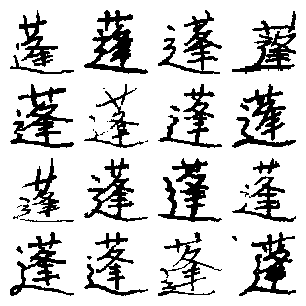 蓬蓬蓬蓬
蓬蓬蓬蓬
蓬蓬蓬蓬
蓬蓬蓬蓬